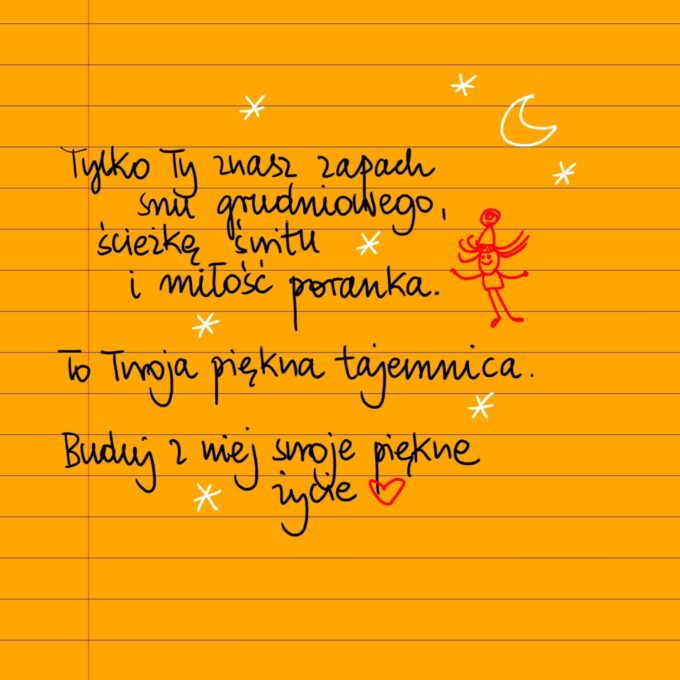 Tylko Ty znasz zapach
snu grudniowego,
ścieżkę świtu
i miłość poranka.
To Twoja piękna tajemnica.
Buduj z niej swoje piękne
życie